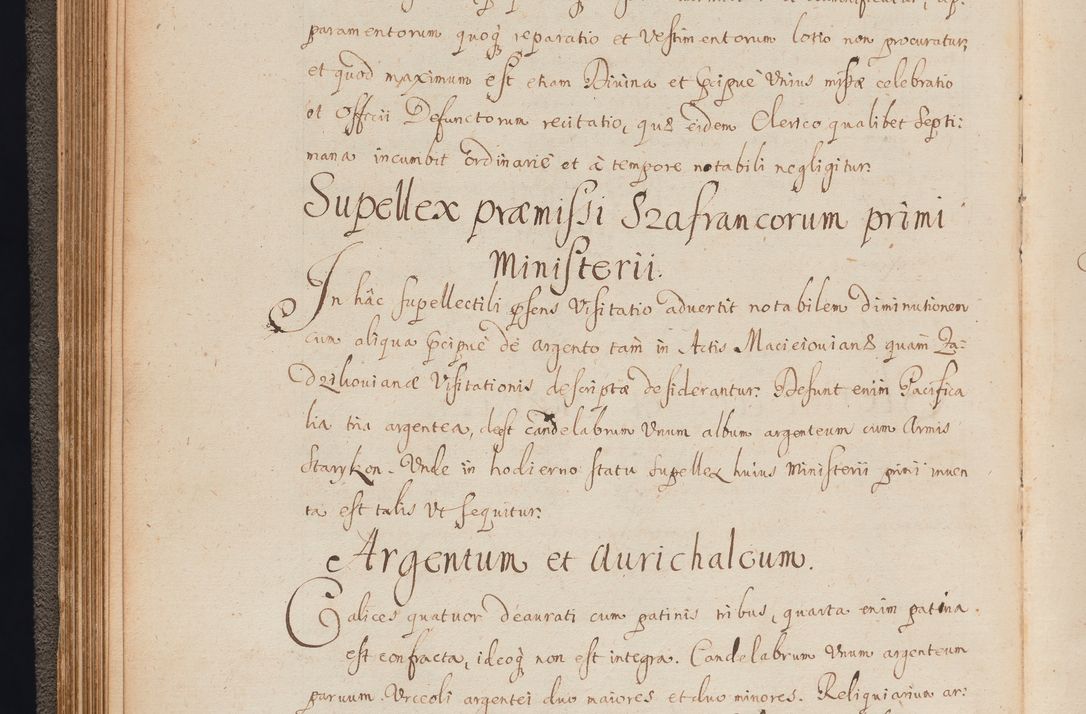 paramentorum quoq̷ reparatio et Vestimentorum lotio non procuratur,
et quod maximum est etiam Divina et p̄cipuè Vnius missæ celebratio
et Officii Defunctorum recitatio, quæ eidem Clerico qualibet Septi:
mana incumbit ordinariè et à tempore notabili negligitur.
Supellex præmissi Szafrancorum primi
Ministerii.
In hâc supellectili p̄sens Visitatio advertit notabilem diminutionem
cum aliqua p̄cipuè de argento tam in Actis Macieiovianæ quam Za:
dzikovianæ Visitationis descriptæ desiderantur. Desunt enim Pacifica
lia tria argentea, deest candelabrum Vnum album argenteum cum Armis
Starykon. Vnde in hodierno statu Supellex huius Ministerii primi inven
ta est talis Vt sequitur.
Argentum et Aurichalcum.
Calices quatuor deaurati cum patinis tribus, quarta enim patina
est confracta, ideoq̷ non est integra. Candelabrum Vnum argenteum
parvum. Vrceoli argentei duo maiores et duo minores. Reliquiarium ar: